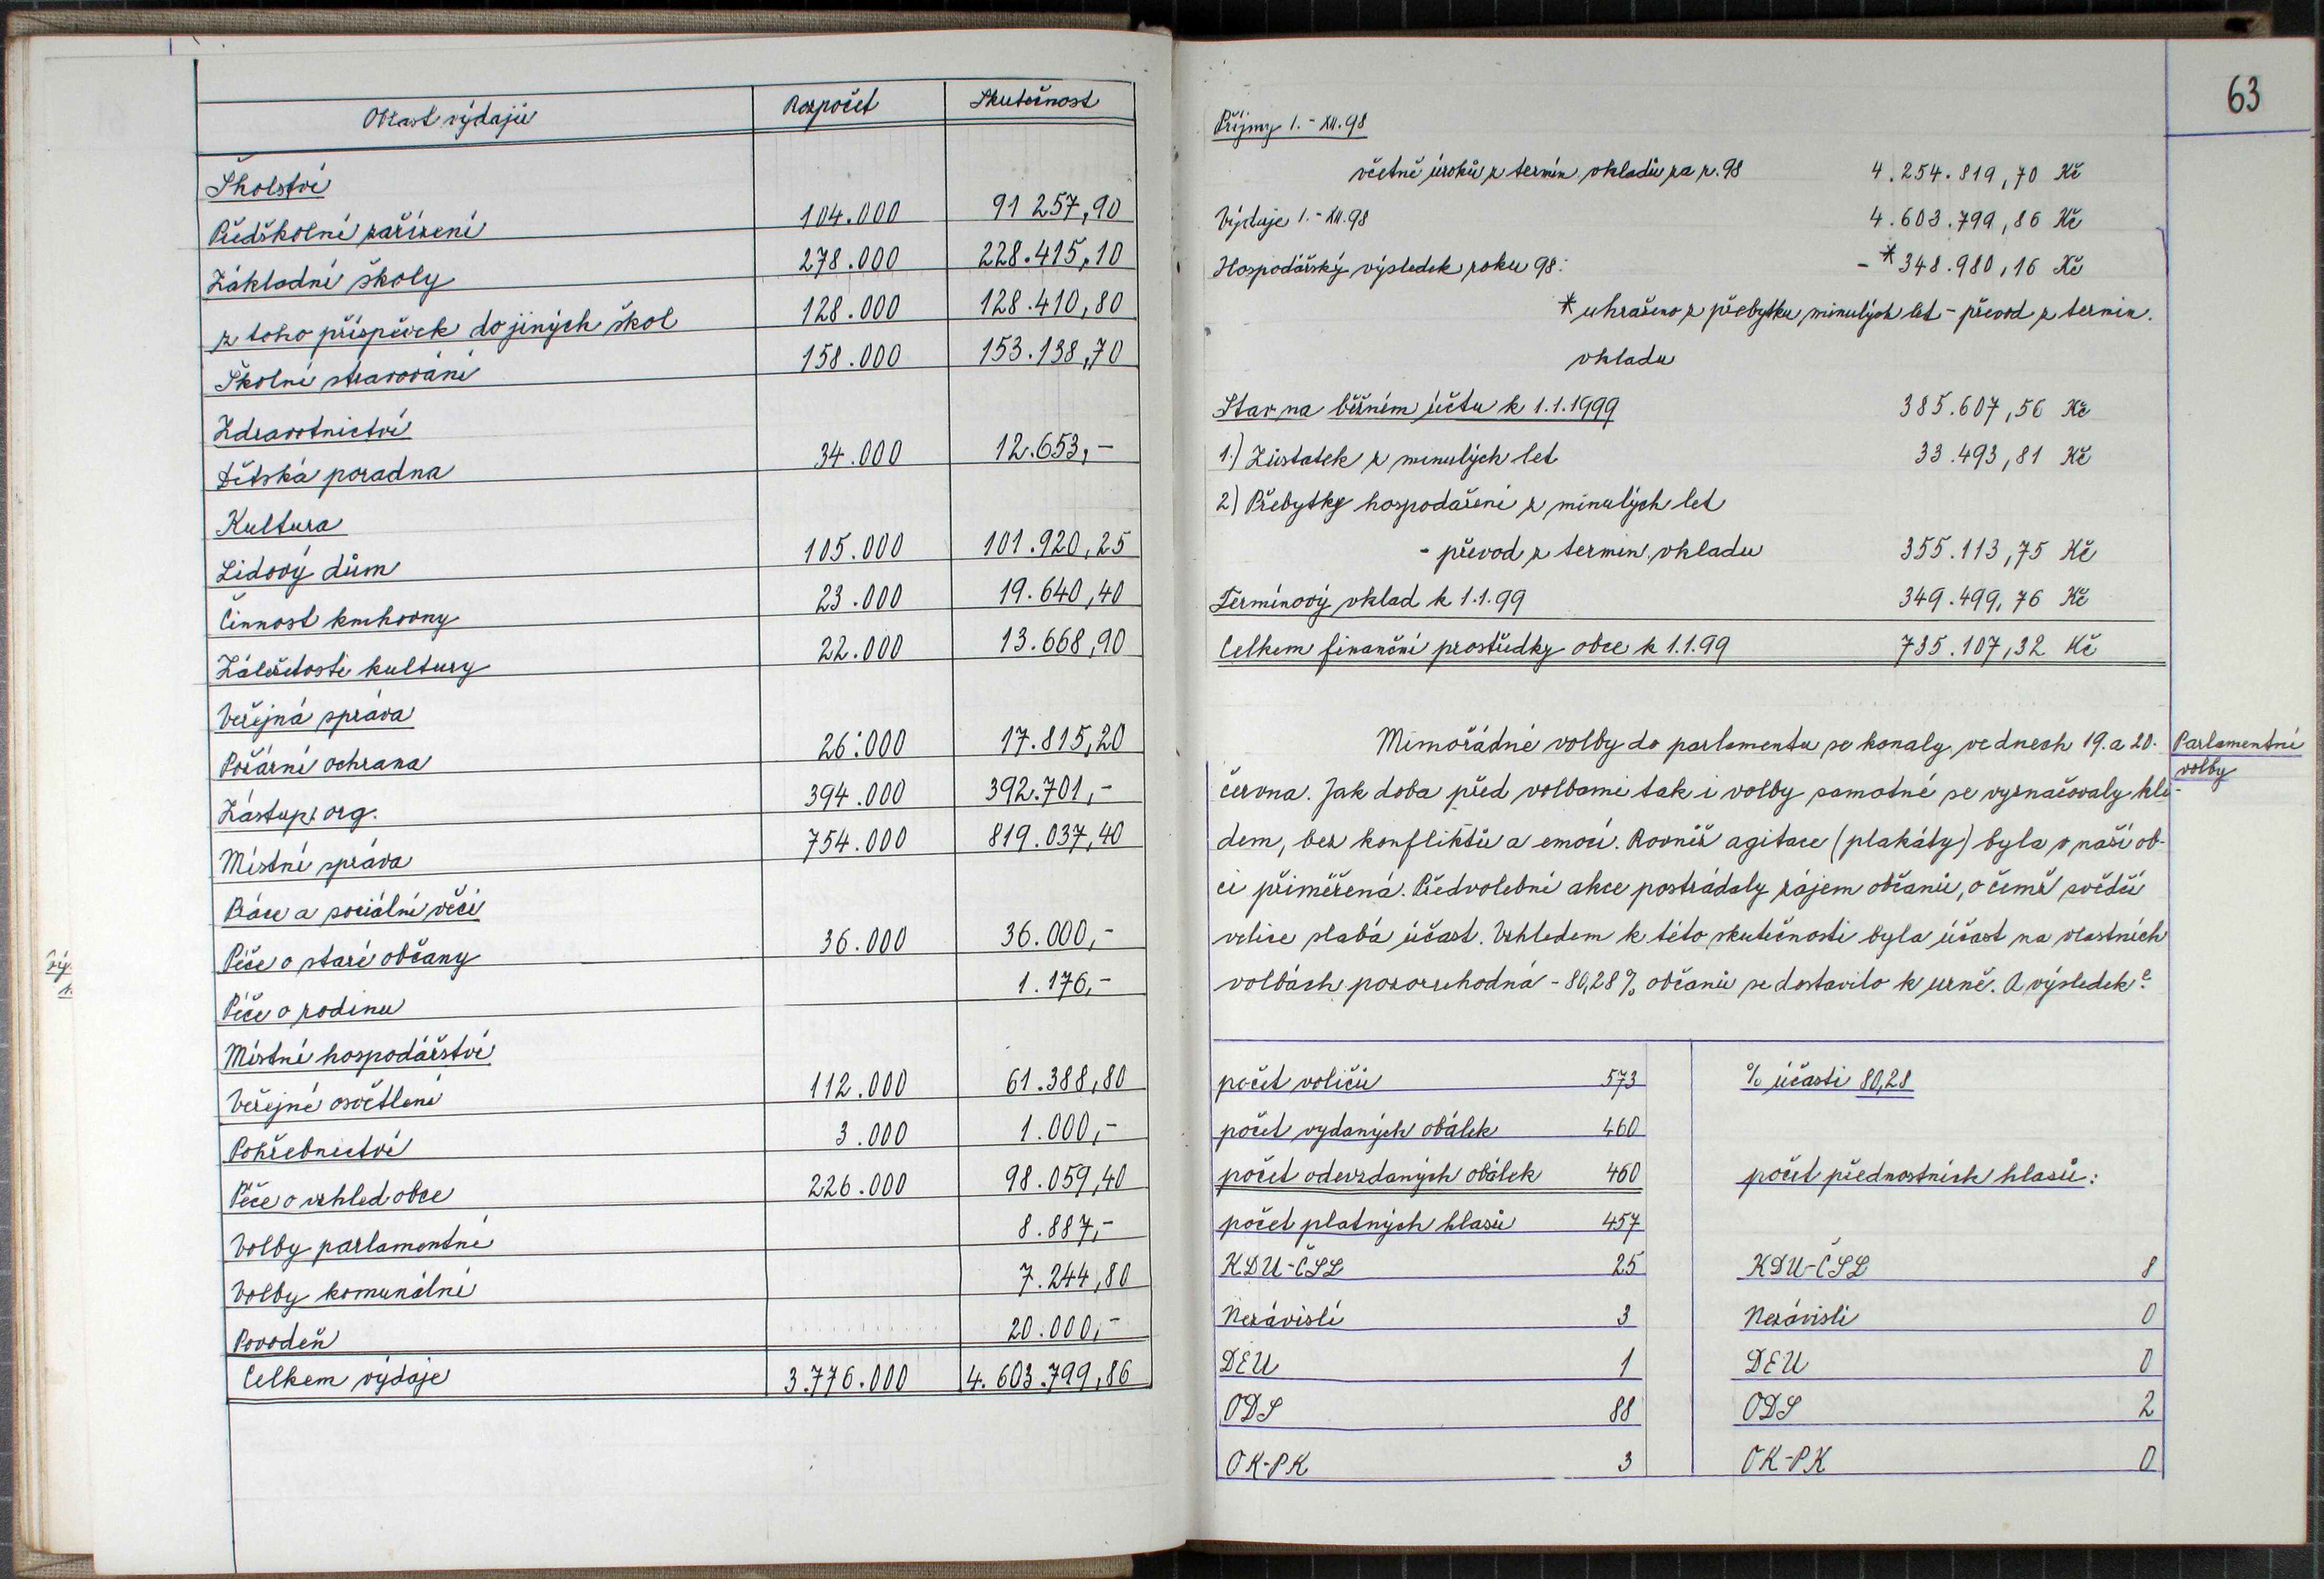 Oblast výdajů Rozpočet Skutečnost
Školství
Předškolní zařízení 104.000 91 257,90
Základní školy 278.000 228.415,10
z toho příspěvek do jiných škol 128.000 128.410,80
Školní stravování 158.000 153.138,70
Zdravotnictví
Dětská poradna 34.000 12.653,-
Kultura
Lidový dům 105.000 101.920,25
Činnost knihovny 23.000 19.640,40
Záležitosti kultury 22.000 13.668,90
Veřejná správa
Požární ochrana 26.000 17.815,20
Zástup. org. 394.000 392.701,-
Místní správa 754.000 819.037,40
Práce a sociální věci
Péče o staré občany 36.000 36.000,-
Péče o rodinu 1.176,-
Místní hospodářství
Veřejné osvětlení 112.000 61.388,80
Pohřebnictví 3.000 1.000,-
Péče o vzhled obce 226.000 98.059,40
Volby parlamentní 8.887,-
Volby komunální 7.244,80
Povodeň 20.000,-
Celkem výdaje 3.776.000 4.603.799,86
63
Příjmy 1.-XII.98
včetně úroků z termín. vkladů za r. 98 4.254.819,70 Kč
Výdaje 1.-XII.98 4.603.799,86 Kč
Hospodářský výsledek roku 98: -*348.980,16 Kč
* uhrazeno z přebytku minulých let - převod z termin.
vkladu
Stav na běžném účtu k 1.1.1999 385.607,56 Kč
1.) Zůstatek z minulých let 33.493,81 Kč
2) Přebytky hospodaření z minulých let
- převod z termin. vkladu 355.113,75 Kč
Termínový vklad k 1.1.99 349.499,76 Kč
Celkem finanční prostředky obce k 1.1.99 735.107,32 Kč
Mimořádné volby do parlamentu se konaly ve dnech 19. a 20.
Parlamentní
volby
června. Jak doba před volbami tak i volby samotné se vyznačovaly kli-
dem, bez konfliktů a emocí. Rovněž agitace (plakáty) byla v naší ob-
ci přiměřená. Předvolební akce postrádaly zájem občanů, o čemž svědčí
velice slabá účast. Vzhledem k této skutečnosti byla účast na vlastních
volbách pozoruhodná - 80,28% občanů se dostavilo k urně. A výsledek?
počet voličů 573 % účasti 80,28
počet vydaných obálek 460
počet odevzdaných obálek 460 počet přednostních hlasů:
počet platných hlasů 457
KDU-ČSL 25 KDU-ČSL 8
Nezávislí 3 Nezávislí 0
DEU 1 DEU 0
ODS 88 ODS 2
OK-PK 3 OK-PK 0